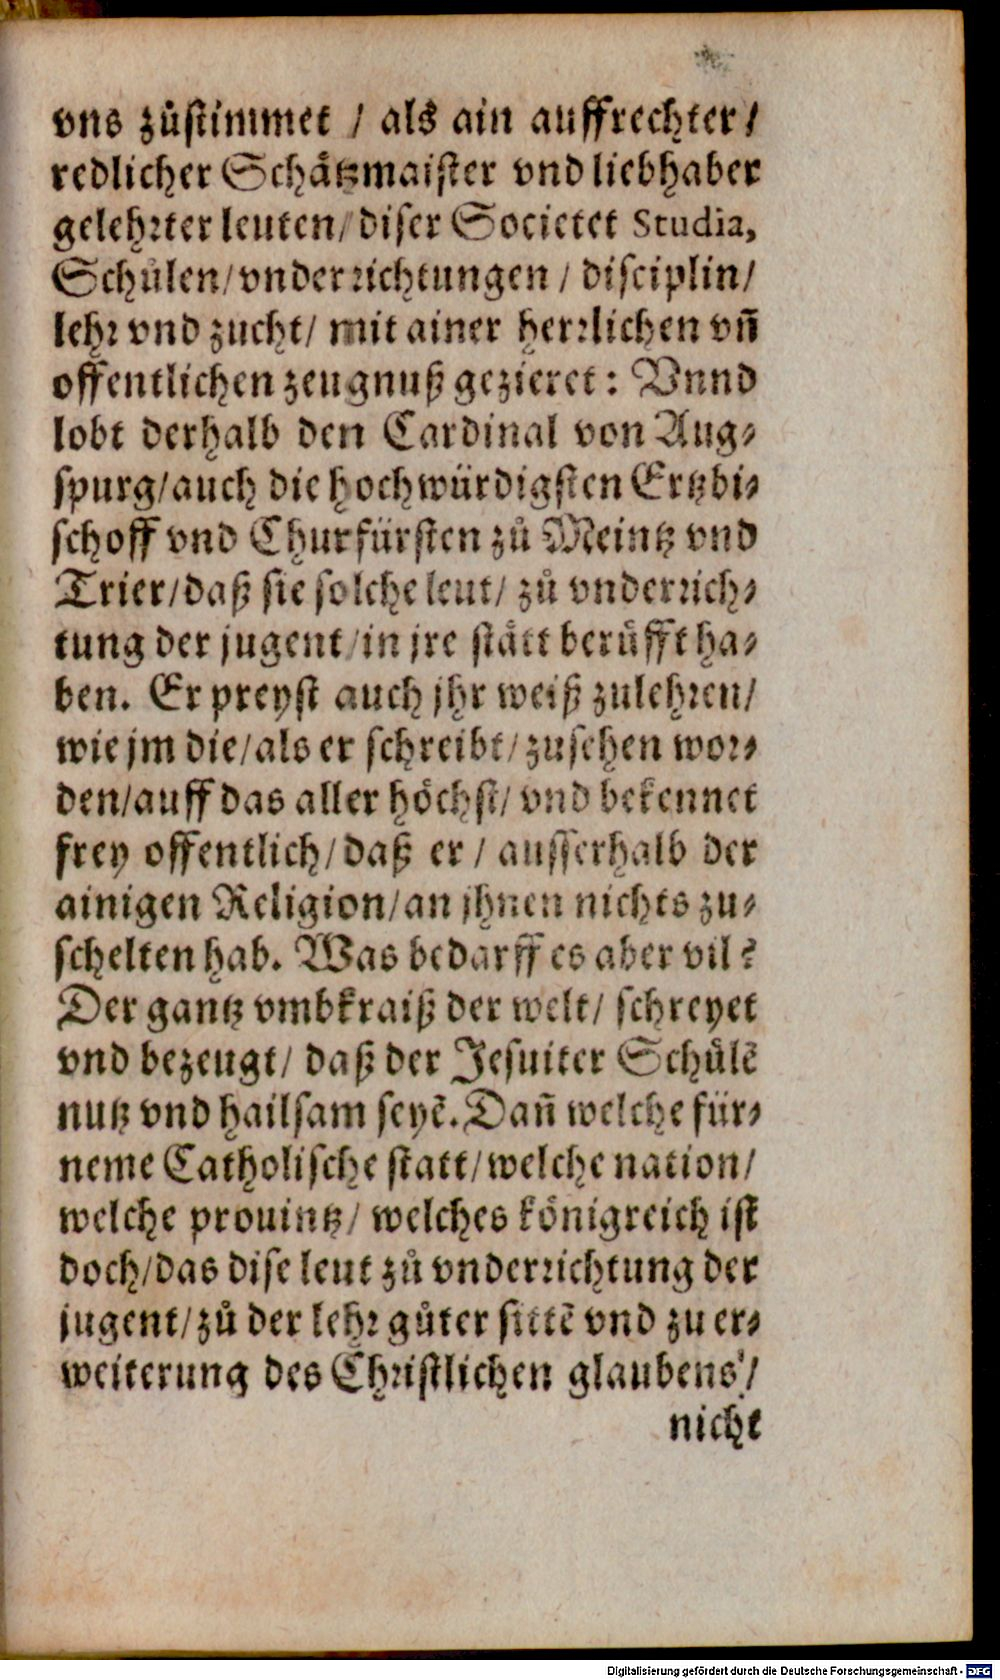 vns zůstimmet / als ain auffrechter /
redlicher Schätzmaister vnd liebhaber
gelehrter leuten / diser Societet Studia,
Schůlen / vnderrichtungen / disciplin /
lehr vnd zucht / mit ainer herrlichen vn̄
offentlichen zeugnuß gezieret : Vnnd
lobt derhalb den Cardinal von Aug⸗
spurg / auch die hochwürdigsten Ertzbi⸗
schoff vnd Churfürsten zů Meintz vnd
Trier / daß sie solche leut / zů vnderrich⸗
tung der jugent / in jre stätt berůfft ha⸗
ben. Er preyst auch jhr weiß zulehren /
wie jm die / als er schreibt / zusehen wor⸗
den / auff das aller höchst / vnd bekennet
frey offentlich / daß er / ausserhalb der
ainigen Religion / an jhnen nichts zu⸗
schelten hab. Was bedarff es aber vil?
Der gantz vmbkraiß der welt / schreyet
vnd bezeugt / daß der Jesuiter Schůlē
nutz vnd hailsam seyē. Dan̄ welche für⸗
neme Catholische statt / welche nation /
welche prouintz / welches königreich ist
doch / das dise leut zů vnderrichtung der
jugent / zů der lehr gůter sittē vnd zu er⸗
weiterung des Christlichen glaubens /
nicht
Digitalisierung gefördert durch die Deutsche Forschungsgemeinschaft - DFG